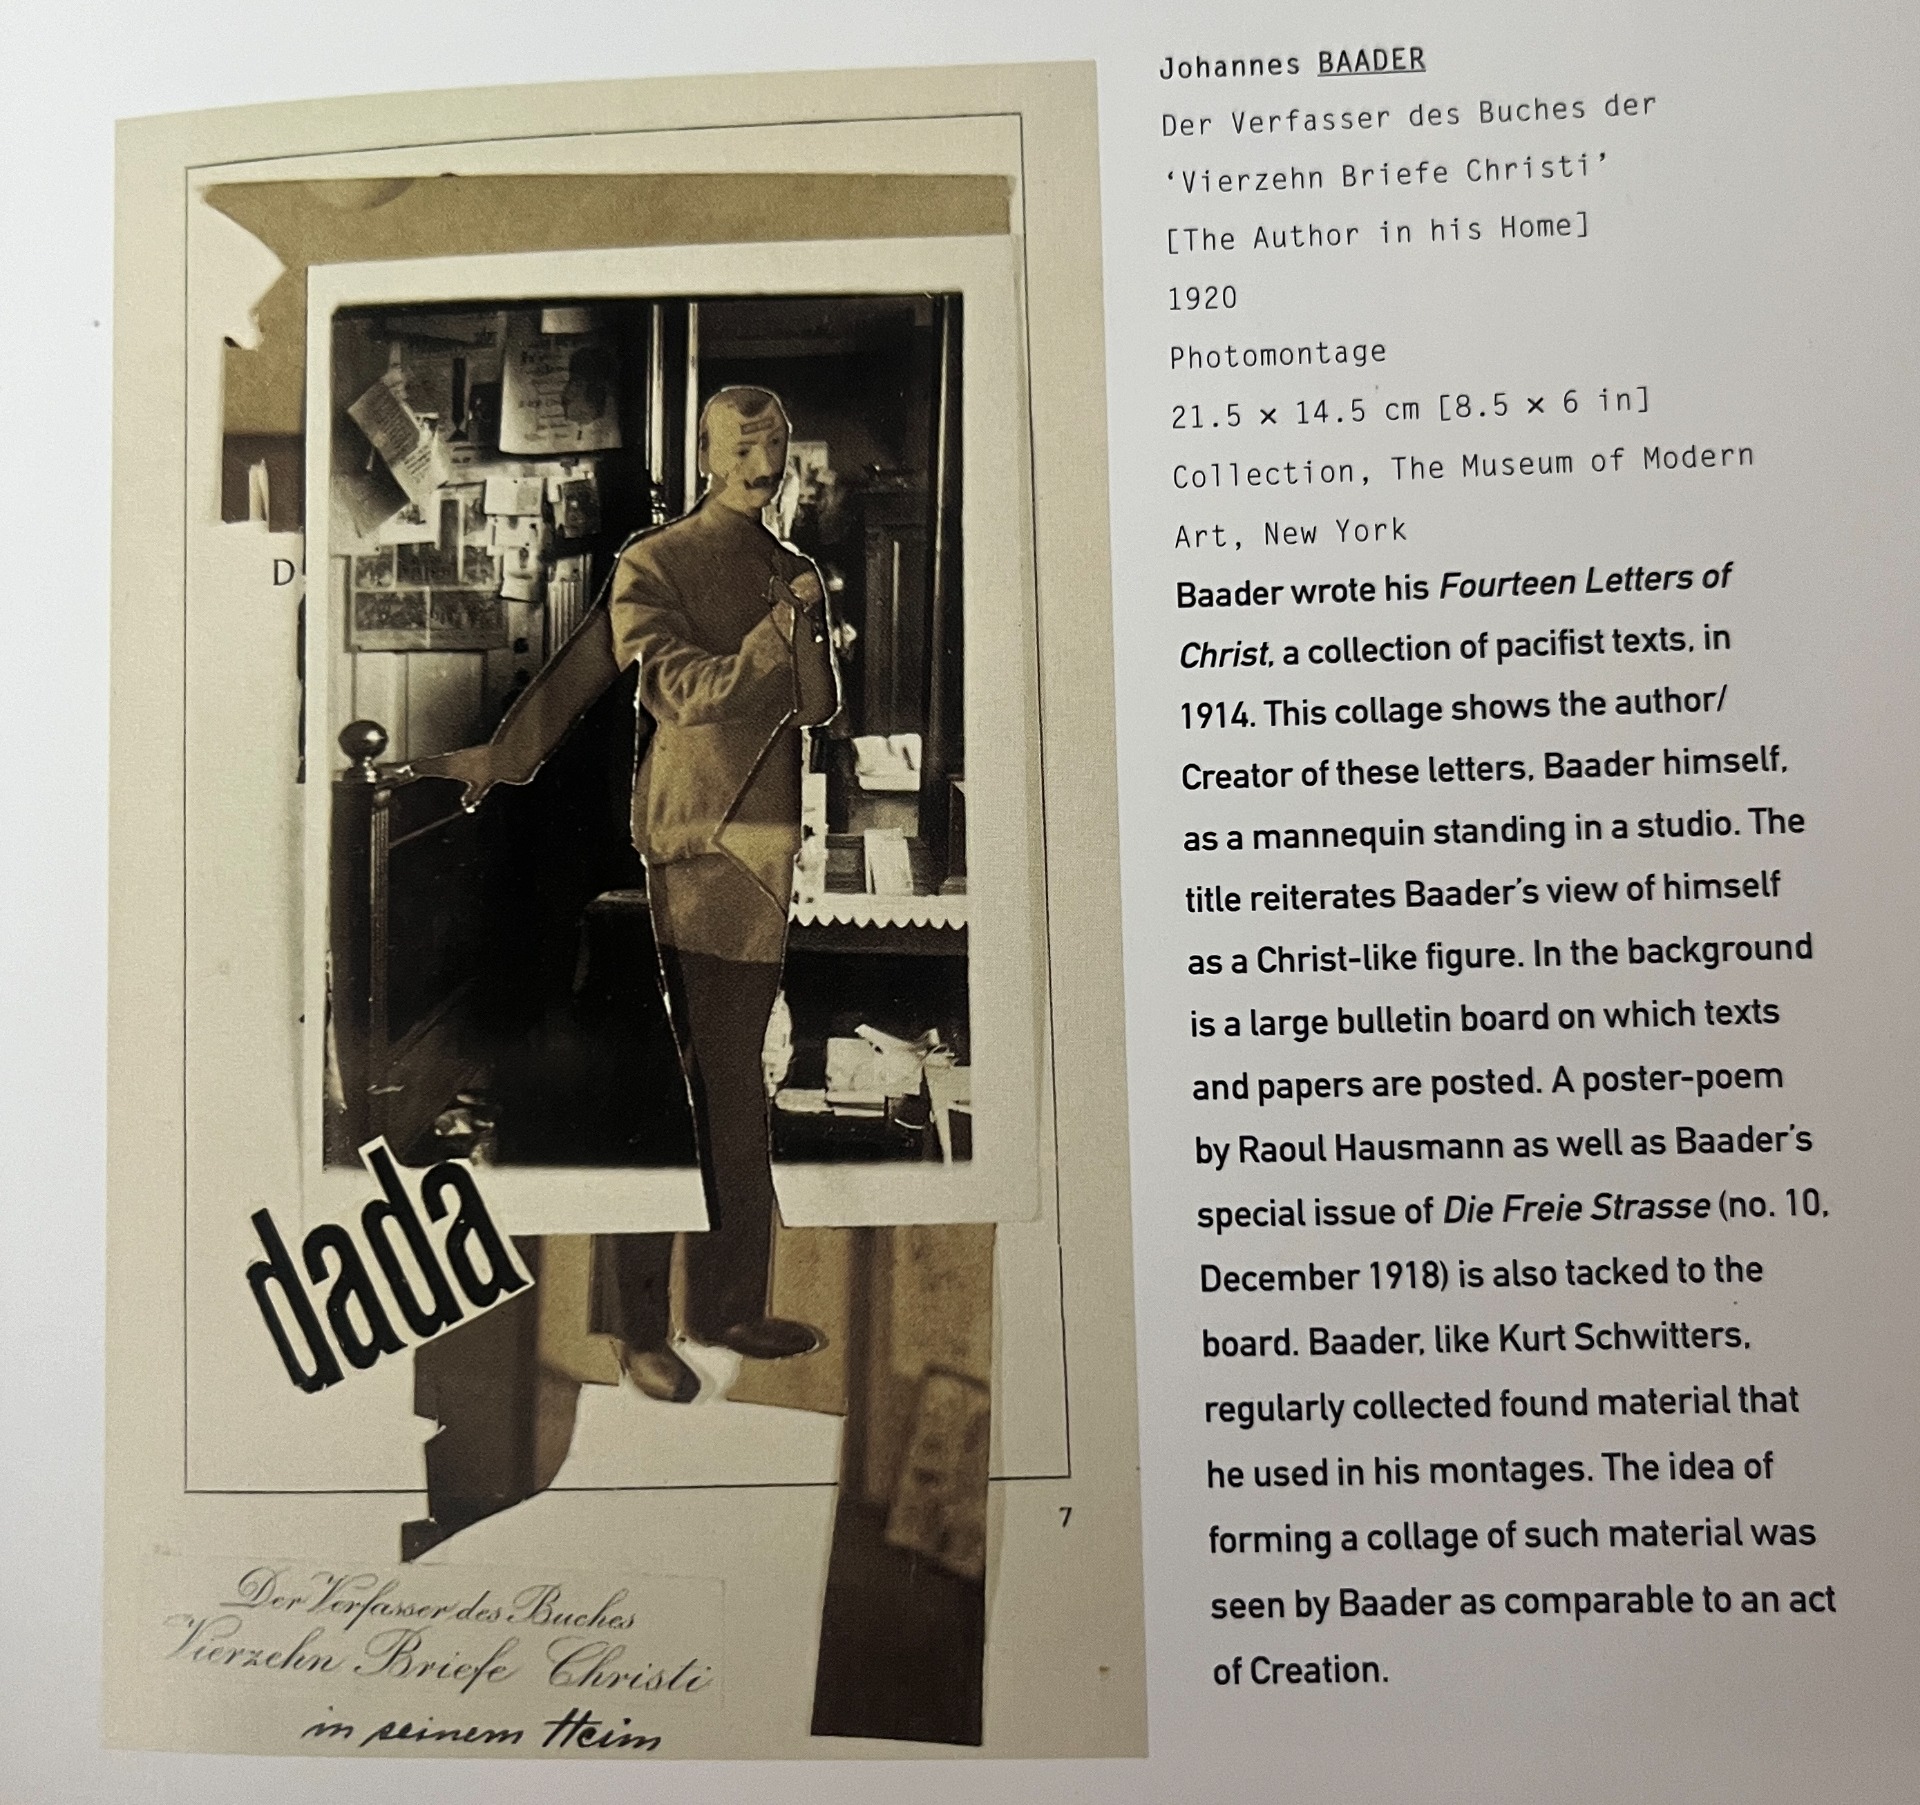 Johannes BAADER
Der Verfasser des Buches der
‘Vierzehn Briefe Christi’
[The Author in his Home]
1920
Photomontage
21.5 × 14.5 cm [8.5 × 6 in]
Collection, The Museum of Modern
Art, New York
Baader wrote his Fourteen Letters of
Christ, a collection of pacifist texts, in
1914. This collage shows the author/
Creator of these letters, Baader himself,
as a mannequin standing in a studio. The
title reiterates Baader’s view of himself
as a Christ-like figure. In the background
is a large bulletin board on which texts
and papers are posted. A poster-poem
by Raoul Hausmann as well as Baader’s
special issue of Die Freie Strasse (no. 10,
December 1918) is also tacked to the
board. Baader, like Kurt Schwitters,
regularly collected found material that
he used in his montages. The idea of
forming a collage of such material was
seen by Baader as comparable to an act
of Creation.
D
dada
7
Der Verfasser des Buches
Vierzehn Briefe Christi
in seinem Heim